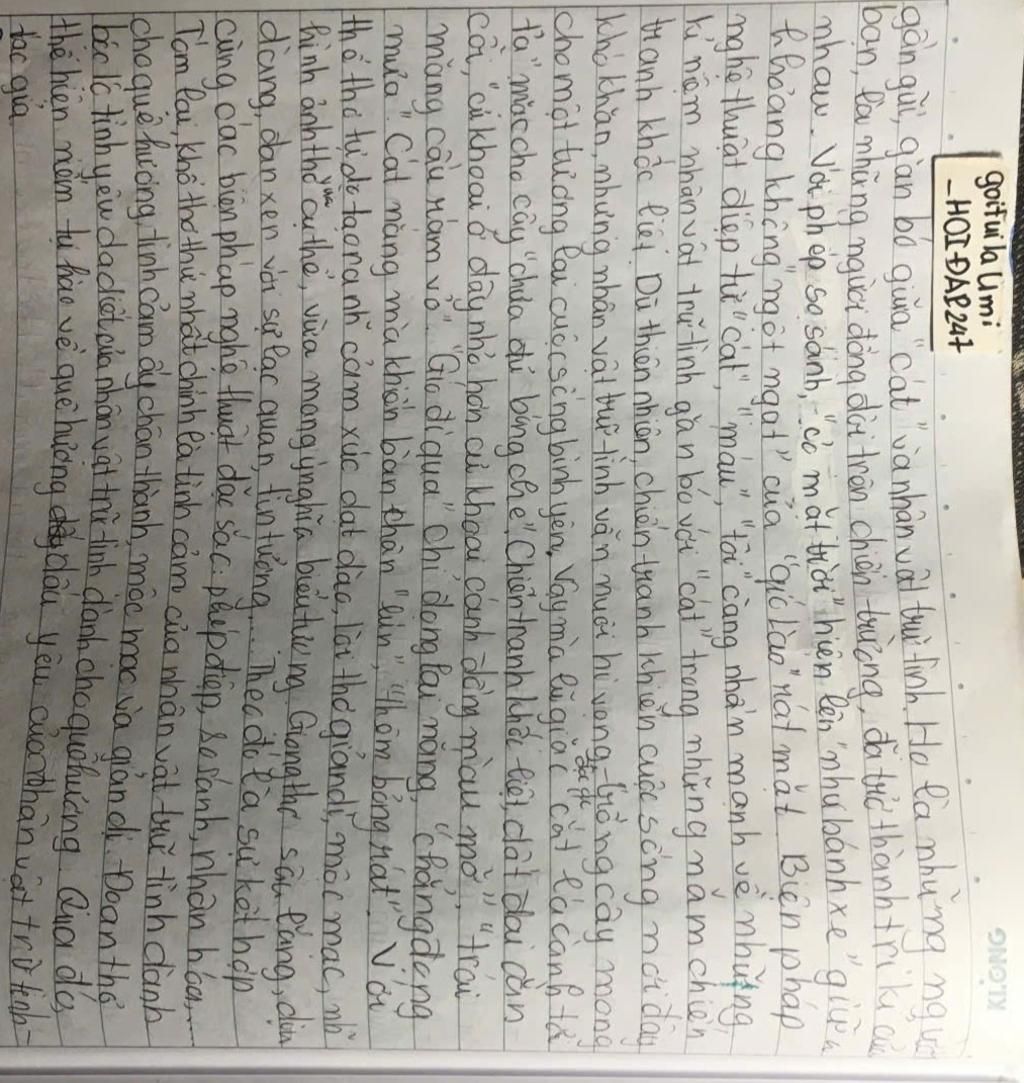 goituilaUmi
-HOIĐAP247
KLONG
gần gũi, gắn bó giữa "cát" và nhân vật trữ tình. Họ là những người
bạn, là những người đồng đội trên chiến trường, đã trở thành tri kỉ của
nhau. Với phép so sánh, "có mặt trời" hiện lên "như bánh xe" giữa
khoảng không "ngột ngạt" của "gió Lào" rát mặt. Biện pháp
nghệ thuật điệp từ "cát", "máu", "tôi" càng nhấn mạnh về những
kỉ niệm nhân vật trữ tình gắn bó với "cát" trong những năm chiến
tranh khốc liệt. Dù thiên nhiên, chiến tranh khiến cuộc sống nơi đây
khó khăn, nhưng nhân vật trữ tình vẫn nuôi hi vọng - trồng cây mong
cho một tương lai cuộc sống bình yên. Vậy mà lũ giặc cắt lá cành tả
tơi" mặc cho cây "chưa đủ bóng che". Chiến tranh khốc liệt, đất đai cằn
cỗi, "củ khoai ở đây nhỏ hơn củ khoai cánh đồng màu mỡ", "trái
mãng cầu rám vỏ". "Gió đi qua" chỉ đọng lại nắng, "chẳng đọng
mưa". Cát nắng mà khiến bàn chân "lún", "thêm bỏng rát". Với
thể thơ tự do tạo ra nh cảm xúc dạt dào, lời thơ giản dị, mộc mạc, nh
hình ảnh thơ vừa cụ thể, vừa mang ý nghĩa biểu tượng. Giọng thơ sâu lắng, dịu
dàng, đan xen với sự lạc quan, tin tưởng... Theo đó là sự kết hợp
cùng các biện pháp nghệ thuật đặc sắc: phép điệp, so sánh, nhân hóa,...
Tóm lại, khổ thơ thứ nhất chính là tình cảm của nhân vật trữ tình dành
cho quê hương, tình cảm ấy chân thành, mộc mạc và giản dị. Đoạn thơ
bộc lộ tình yêu da diết của nhân vật trữ tình dành cho quê hương. Qua đó,
thể hiện niềm tự hào về quê hương dấu yêu của nhân vật trữ tình-
tác giả